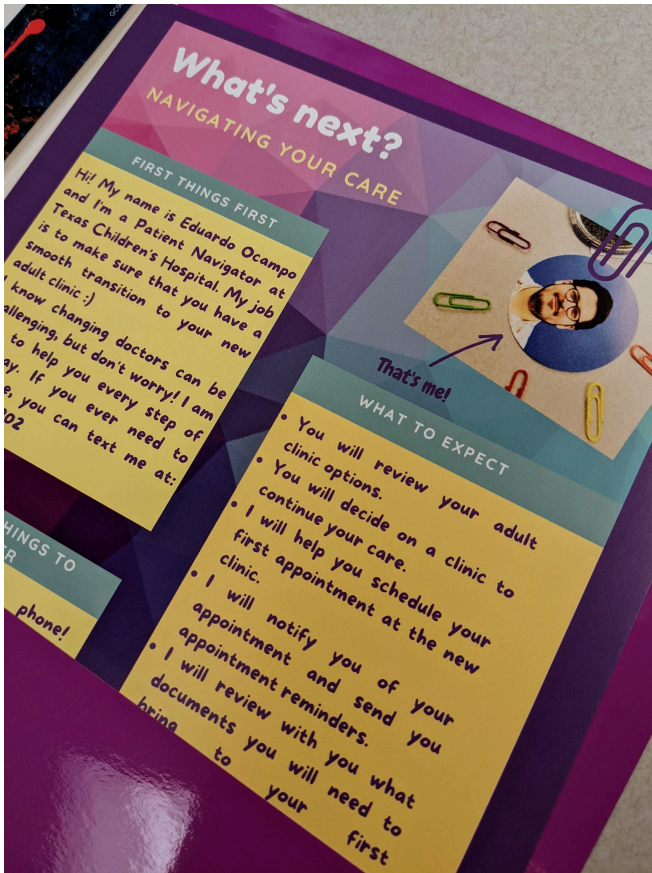 What's next?
NAVIGATING YOUR CARE
FIRST THINGS FIRST
Hi! My name is Eduardo Ocampo
and I'm a Patient Navigator at
Texas Children's Hospital. My job
is to make sure that you have a
smooth transition to your new
adult clinic :)
I know changing doctors can be
allenging, but don't worry! I am
to help you every step of
ay. If you ever need to
e, you can text me at:
202
That's me!
WHAT TO EXPECT
• You will review your adult
clinic options.
• You will decide on a clinic to
continue your care.
• I will help you schedule your
first appointment at the new
clinic.
• I will notify you of your
appointment and send you
appointment reminders.
• I will review with you what
documents you will need to
bring to your first
HINGS TO
ER
phone!